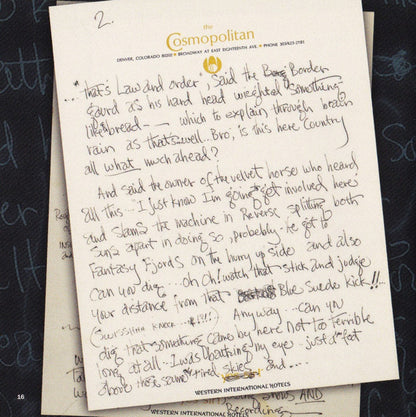 2.
the
Cosmopolitan
DENVER, COLORADO 80202 • BROADWAY AT EAST EIGHTEENTH AVE. • PHONE 303/623-2181
..."that's Law and order", said the Border
gaurd as his hard head weighted something
like bread — which to explain through brain
rain as that's well.. Bro, is this here Country
all what much ahead?
And said the owner of the velvet horse who heard
all this... "I just know I'm going to get involved here"
and slams the machine in Reverse splitting both
Sunz apart in doing so, probebly he got to
Fantasy Fjords on the hurry up side and also
can you dig... oh Oh! watch that stick and judge
your distance from that Blue suede kick!!..
Anyway... can you
dig that something came by here Not too Terrible
long at all. I was my eye just a feet
above the same tired skies and....
WESTERN INTERNATIONAL HOTELS
16
AND
WESTERN INTERNATIONAL HOTELS